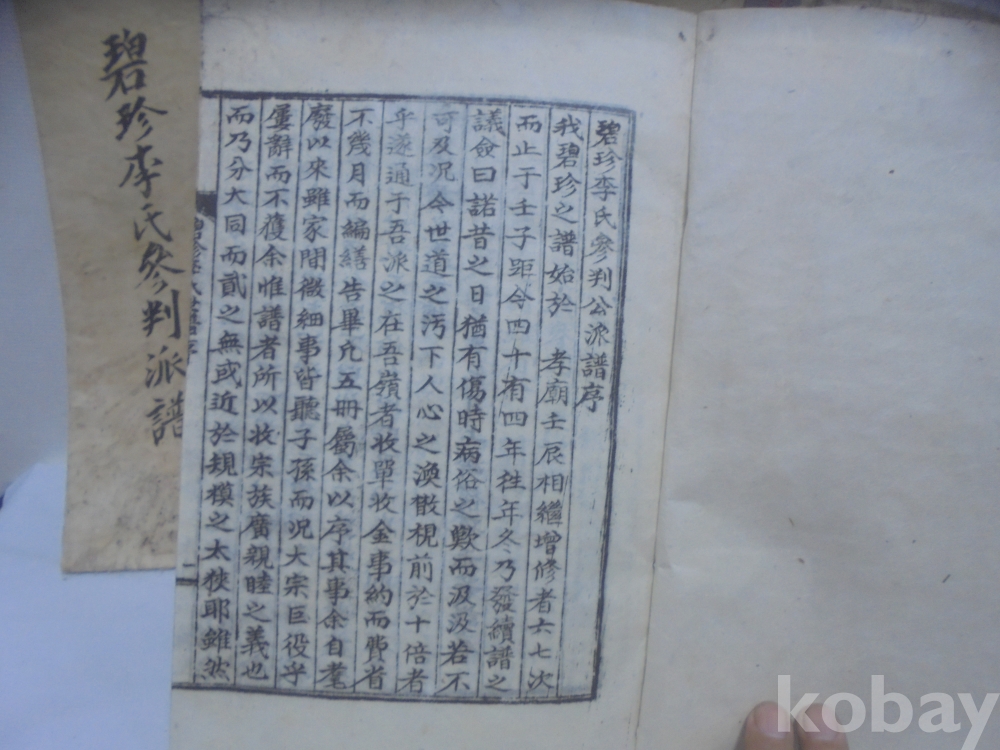 碧珍李氏參判公派譜序
我碧珍之譜始於 孝廟壬辰相繼增修者六七次
而止于壬子距今四十有四年往年冬乃發續譜之
議僉曰諾昔之日猶有傷時病俗之歎而汲汲若不
可及况今世道之汚下人心之渙散視前於十倍者
乎遂通于吾派之在吾嶺者收單收金事約而費省
不幾月而編繕告畢凡五冊屬余以序其事余自耄
廢以來雖家間微細事皆聽子孫而况大宗巨役乎
屢辭而不獲余惟譜者所以收宗族廣親睦之義也
而乃分大同而貳之無或近於規模之太狹耶雖然
碧珍李氏參判派譜
一
kobay